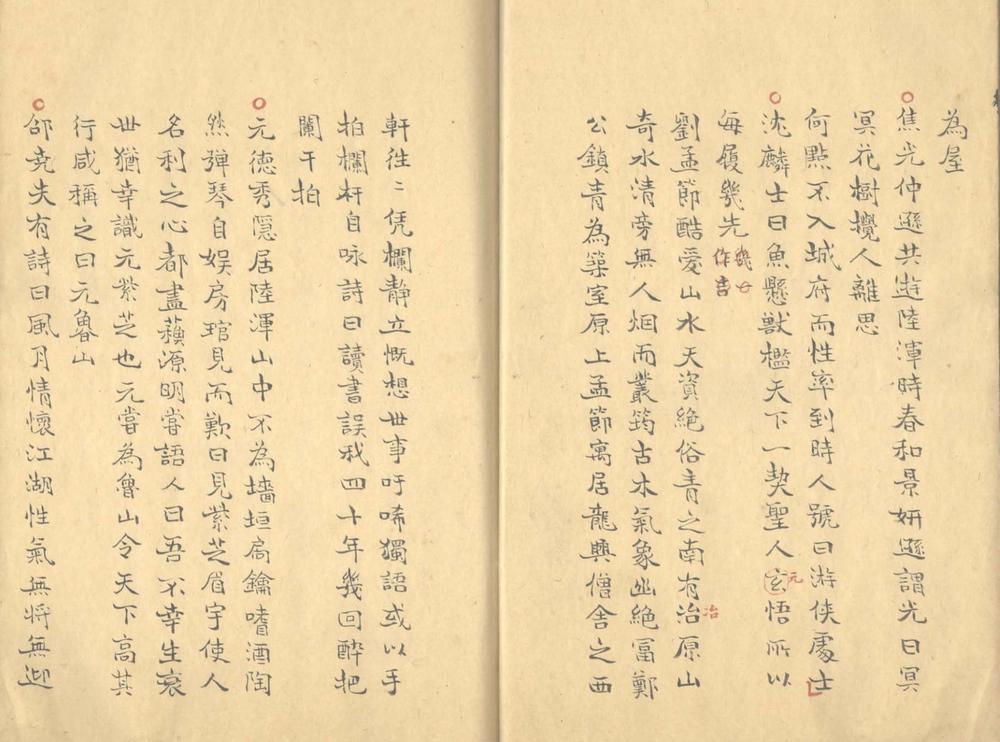 為屋
焦光仲遜共遊陸渾時春和景妍遜謂光曰冥
冥花樹攪人離思
何點不入城府而性率到時人號曰游俠處士
沈麟士曰魚懸獸檻天下一契聖人玄悟所以
元
每履幾先
幾女
作吉
劉孟節酷愛山水天資絕俗青之南有冶原山
治
奇水清旁無人烟而叢筠古木氣象幽絕富鄭
公鎮青為築室原上孟節寓居龍興僧舍之西
軒往〻凭欄靜立慨想世事吁唏獨語或以手
拍欄杆自咏詩曰讀書誤我四十年幾回醉把
闌干拍
元德秀隱居陸渾山中不為墻垣扃鑰嗜酒陶
然彈琴自娱房琯見而歎曰見紫芝眉宇使人
名利之心都盡蘓源明嘗語人曰吾不幸生衰
世猶幸識元紫芝也元嘗為魯山令天下高其
行咸稱之曰元魯山
邵堯夫有詩曰風月情懷江湖性氣無將無迎